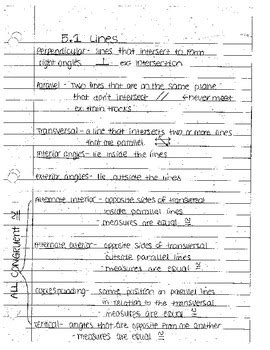 5.1 Lines
Perpendicular - lines that intersect to form
right angles ⊥ ex: intersection
Parallel - Two lines that are on the same plane
that don't intersect // never meet
ex: train tracks
Transversal - a line that intersects two or more lines
that are parallel
Interior angles - lie inside the lines
exterior angles - lie outside the lines
ALL CONGRUENT ≅
Alternate interior - opposite sides of transversal
inside parallel lines
- measures are equal ≅
Alternate exterior - opposite sides of transversal
outside parallel lines
- measures are equal ≅
corresponding - same position on parallel lines
in relation to the transversal
- measures are equal ≅
Vertical - angles that are opposite from one another
- measures are equal ≅